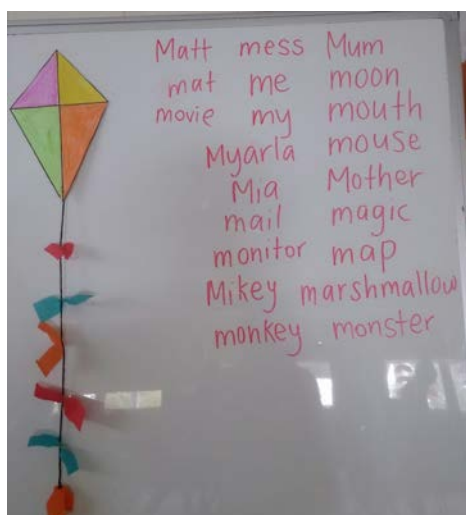 Matt mess Mum
mat me moon
movie my mouth
Myarla mouse
Mia Mother
mail magic
monitor map
Mikey marshmallow
monkey monster